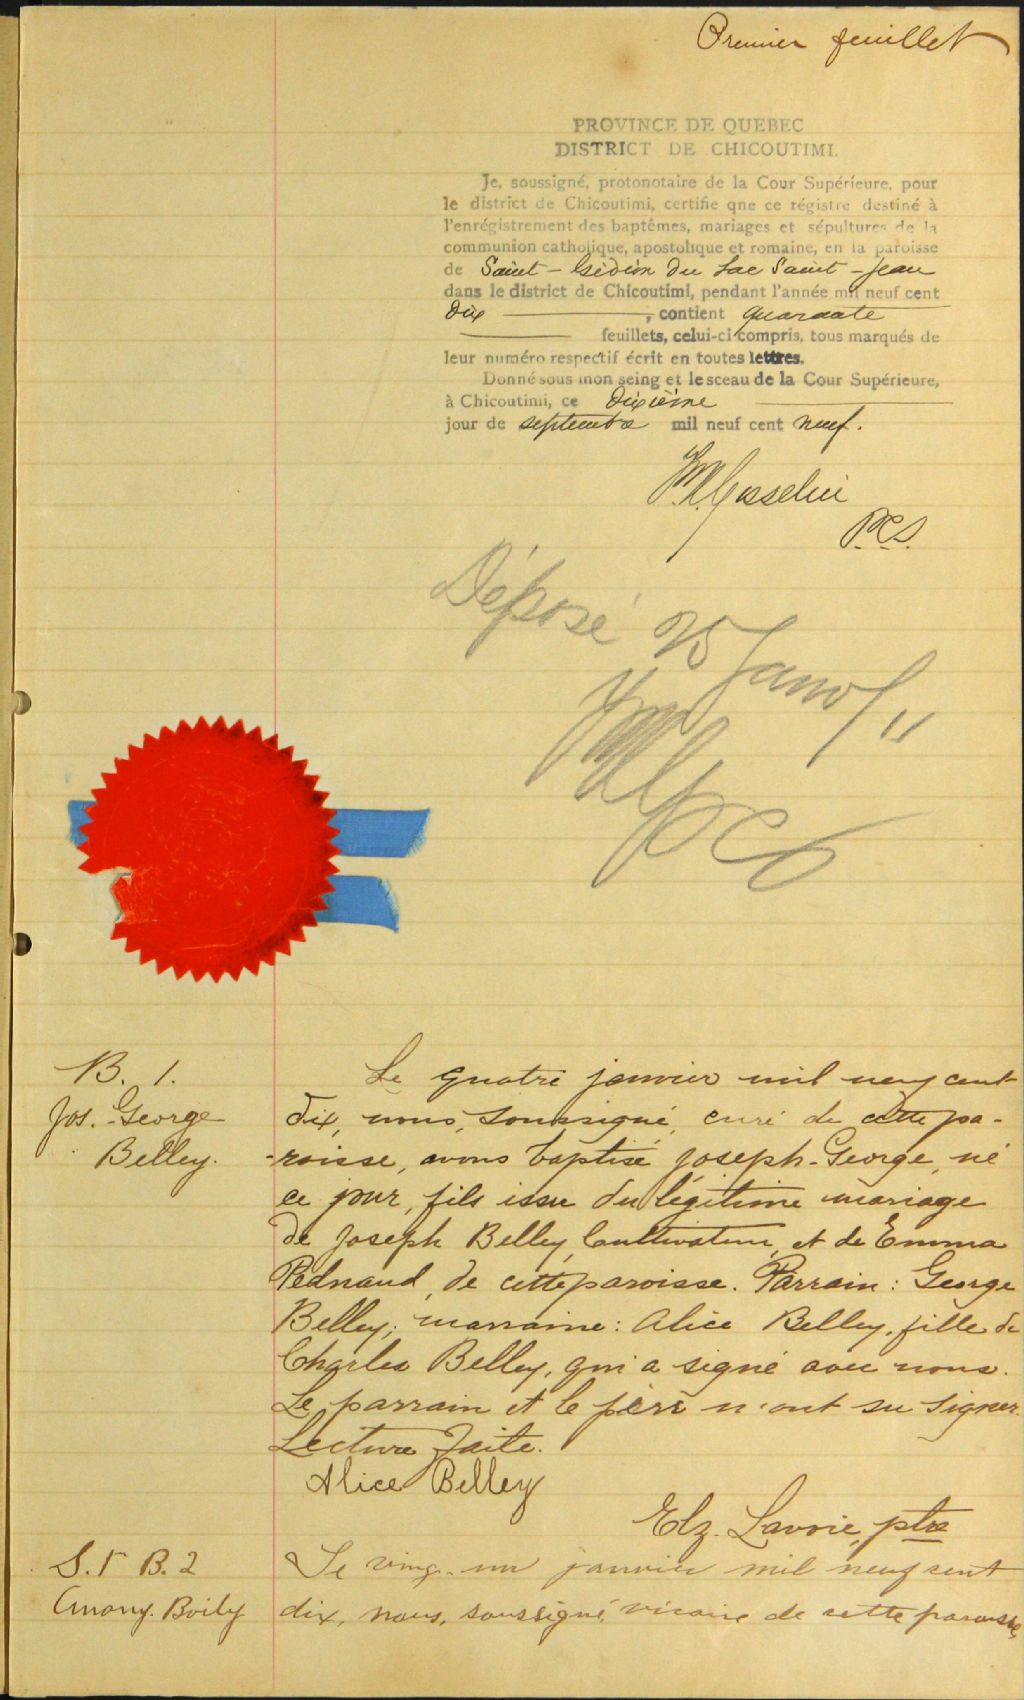 Premier feuillet
PROVINCE DE QUEBEC
DISTRICT DE CHICOUTIMI.
Je, soussigné, protonotaire de la Cour Supérieure, pour
le district de Chicoutimi, certifie qne ce régistre destiné à
l'enrégistrement des baptêmes, mariages et sépultures de la
communion catholique, apostolique et romaine, en la paroisse
de Saint-Gédéon du Lac Saint-Jean
dans le district de Chicoutimi, pendant l'année mil neuf cent
dix, contient quarante
feuillets, celui-ci compris, tous marqués de
leur numéro respectif écrit en toutes lettres.
Donné sous mon seing et le sceau de la Cour Supérieure,
à Chicoutimi, ce dixième
jour de septembre mil neuf cent neuf.
Gosselin
P.C.S.
Déposé 25 Janv/11
B. 1.
Jos.-George
Belley.
Le quatre janvier mil neuf cent
dix, nous, soussigné, curé de cette pa-
-roisse, avons baptisé Joseph-George, né
ce jour, fils issu du légitime mariage
de Joseph Belley, Cultivateur, et de Emma
Pednaud, de cette paroisse. Parrain: George
Belley; marraine: Alice Belley, fille de
Charles Belley, qui a signé avec nous.
Le parrain et le père n'ont su signer.
Lecture faite.
Alice Belley
Elz. Lavoie, ptre
S. 1 B. 2
Anony. Boily
Le ving-un janvier mil neuf cent
dix, nous, soussigné, vicaire de cette paroisse,